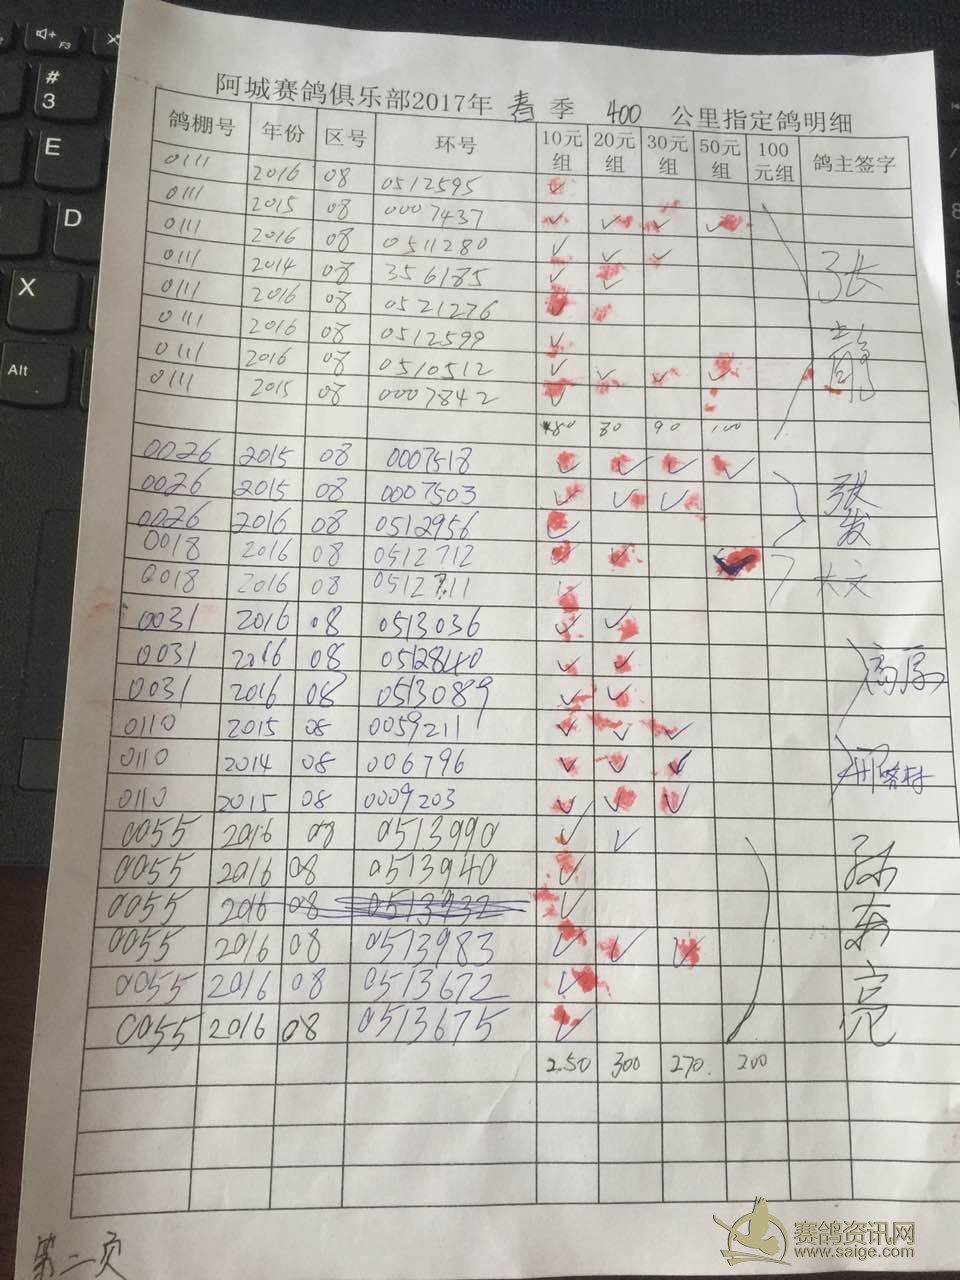 阿城赛鸽俱乐部2017年 春 季 400 公里指定鸽明细
鸽棚号 年份 区号 环号 10元组 20元组 30元组 50元组 100元组 鸽主签字
0111 2016 08 0512595 ✓
0111 2015 08 0007437 ✓ ✓ ✓ ✓
0111 2016 08 0511280 ✓ ✓ ✓
0111 2014 08 356185 ✓ ✓
0111 2016 08 0521276 ✓ ✓
0111 2016 08 0512599 ✓
0111 2016 08 0510512 ✓ ✓ ✓ ✓
0111 2015 08 0007842 ✓
80 80 90 100
0026 2015 08 0007518 ✓ ✓ ✓ ✓
0026 2015 08 0007503 ✓ ✓ ✓ 张
0026 2016 08 0512956 ✓ 发
0018 2016 08 0512712 ✓ ✓ ✓
0018 2016 08 0512711 ✓ 大文
0031 2016 08 0513036 ✓ ✓
0031 2016 08 0512840 ✓ ✓ 高厚
0031 2016 08 0513089 ✓ ✓
0110 2015 08 0059211 ✓ ✓ ✓
0110 2014 08 006796 ✓ ✓ ✓
0110 2015 08 0009203 ✓ ✓ ✓
0055 2016 08 0513990 ✓ ✓
0055 2016 08 0513940 ✓ 孙
0055 2016 08 0513932 ✓ 东
0055 2016 08 0513983 ✓ ✓ ✓
0055 2016 08 0513672 ✓ 亮
0055 2016 08 0513675 ✓
250 300 270. 200
第二页
赛鸽资讯网
www.saige.com